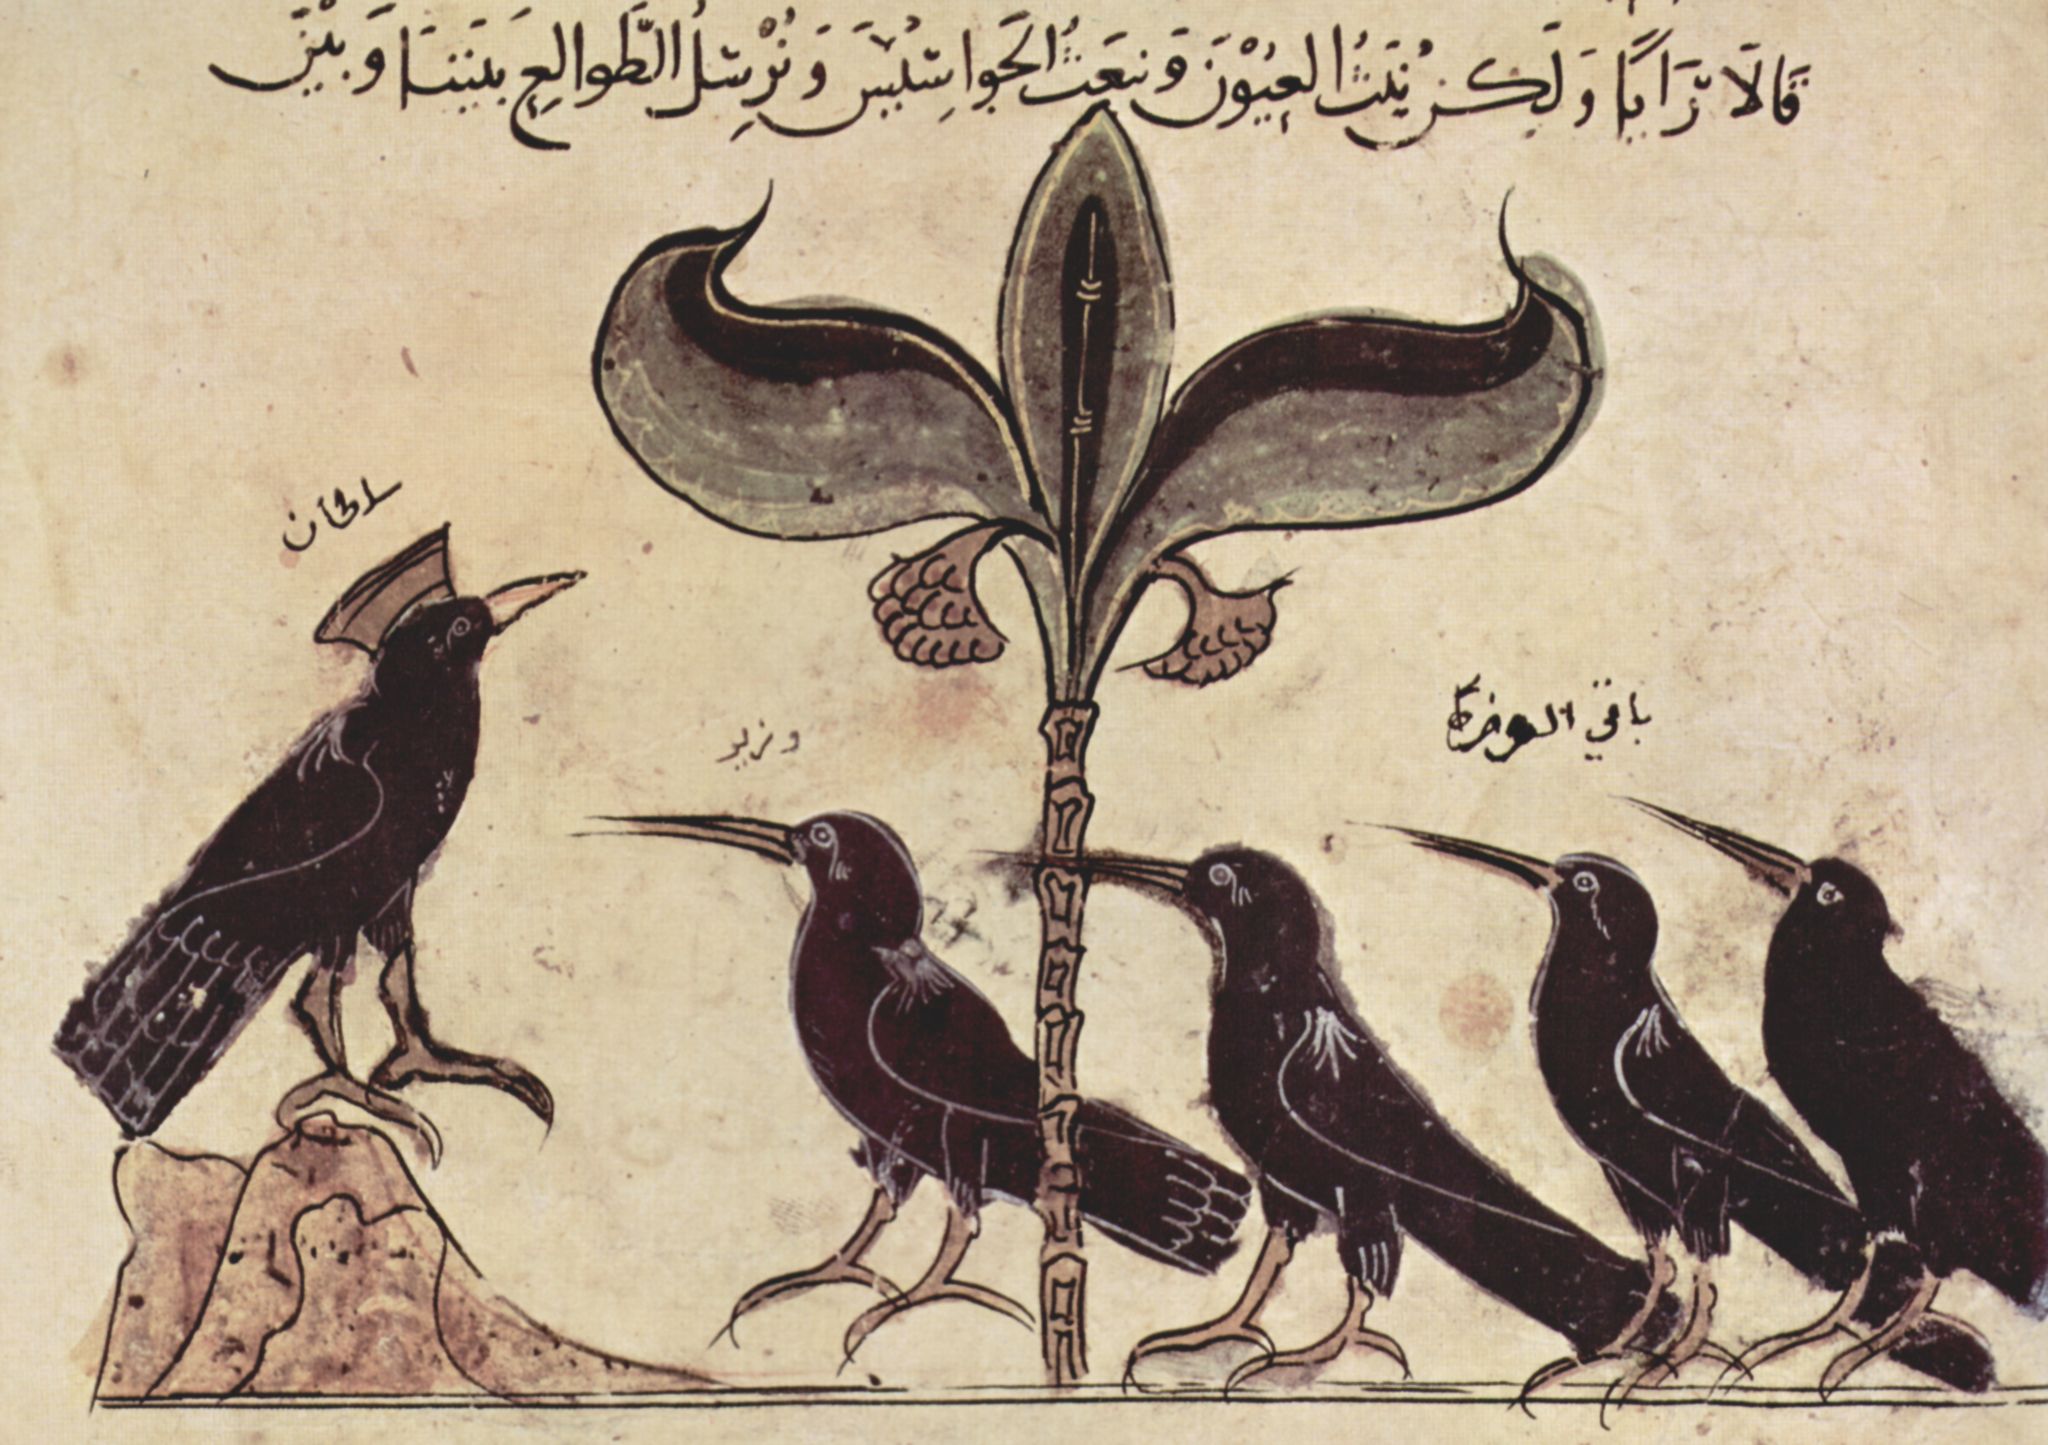 قَالَا رَأيًا وَلَكِن نَبُثُ العِيُوْنَ وَنبعَثُ الجَوَاسِيْسَ وَنُرْسِلُ الطَّوَالِعِ بَيننَا وَبَيْنَ
سلطان
وزير
باقي